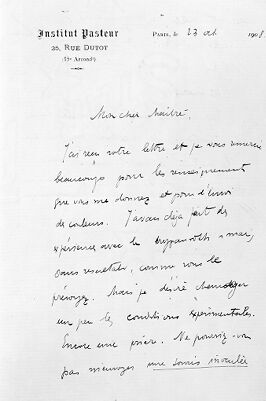 Institut Pasteur
25, RUE DUTOT
(15e Arrondt)
PARIS, le 23 oct 1908
Mon cher Maître,
J'ai reçu votre lettre et je vous remercie
beaucoup pour les renseignements
que vous me donnez et pour l'envoi
de couleurs. J'avais déjà fait des
expériences avec le
sans résultats, comme vous le
prévoyez. Mais je désire changer
un peu les conditions expérimentales.
Encore une prière. Ne pouvez-vous
pas m'envoyer une souris inoculée